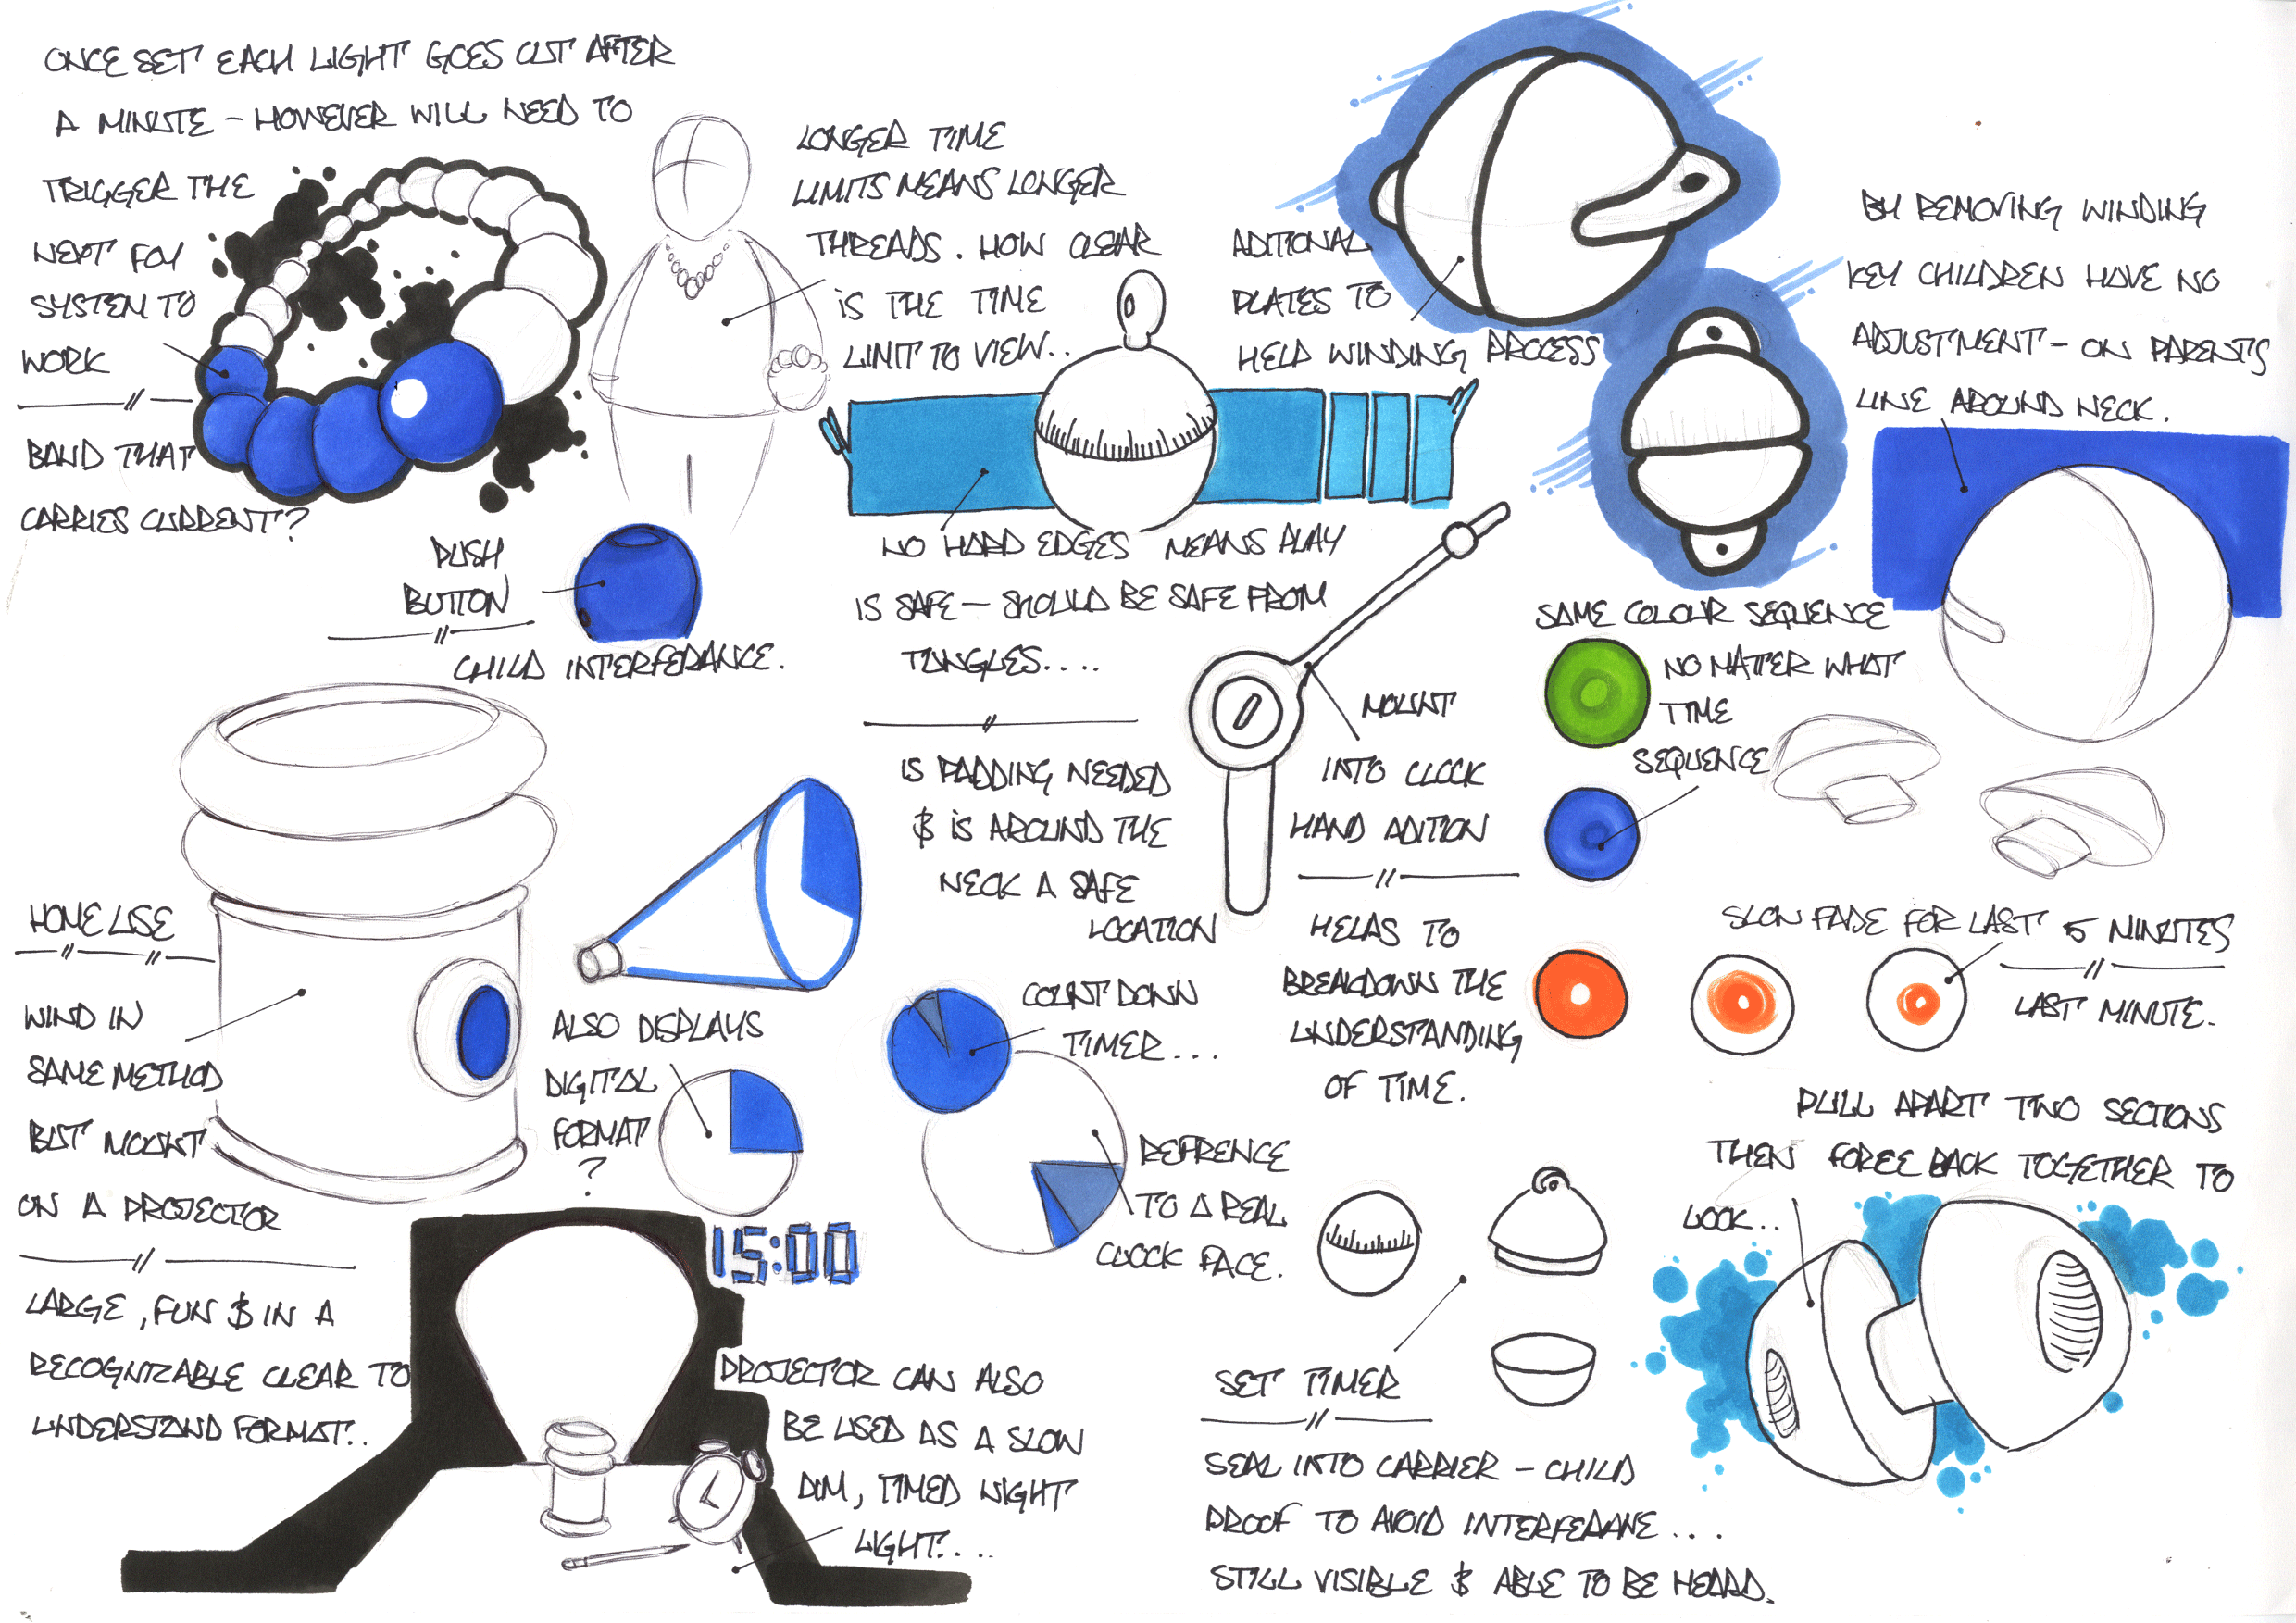 ONCE SET EACH LIGHT GOES OUT AFTER
A MINUTE – HOWEVER WILL NEED TO
TRIGGER THE
NEXT FOR
SYSTEM TO
WORK
BAND THAT
CARRIES CURRENT?
LONGER TIME
LIMITS MEANS LONGER
THREADS. HOW CLEAR
IS THE TIME
LIMIT TO VIEW..
ADITIONAL
PLATES TO
HELP WINDING PROCESS
BY REMOVING WINDING
KEY CHILDREN HAVE NO
ADJUSTMENT – ON PARENTS
LINE AROUND NECK.
PUSH
BUTTON
CHILD INTERFERANCE.
NO HARD EDGES MEANS PLAY
IS SAFE – SHOULD BE SAFE FROM
TANGLES....
IS PADDING NEEDED
& IS AROUND THE
NECK A SAFE
LOCATION
MOUNT
INTO CLOCK
HAND ADITION
HELPS TO
BREAKDOWN THE
UNDERSTANDING
OF TIME.
SAME COLOUR SEQUENCE
NO MATTER WHAT
TIME
SEQUENCE
SLOW FADE FOR LAST 5 MINUTES
LAST MINUTE.
HOME USE
WIND IN
SAME METHOD
BUT MOUNT
ON A PROJECTOR
LARGE, FUN & IN A
RECOGNIZABLE CLEAR TO
UNDERSTAND FORMAT..
ALSO DISPLAYS
DIGITAL
FORMAT
?
15:00
COUNT DOWN
TIMER...
REFRENCE
TO A REAL
CLOCK FACE.
PROJECTOR CAN ALSO
BE USED AS A SLOW
DIM, TIMED NIGHT
LIGHT....
PULL APART TWO SECTIONS
THEN FORCE BACK TOGETHER TO
LOCK..
SET TIMER
SEAL INTO CARRIER – CHILD
PROOF TO AVOID INTERFERANE...
STILL VISIBLE & ABLE TO BE HEARD.